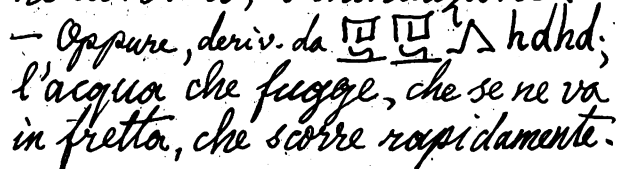 — Oppure, deriv. da hdhd;
l'acqua che fugge, che se ne va
in fretta, che scorre rapidamente.